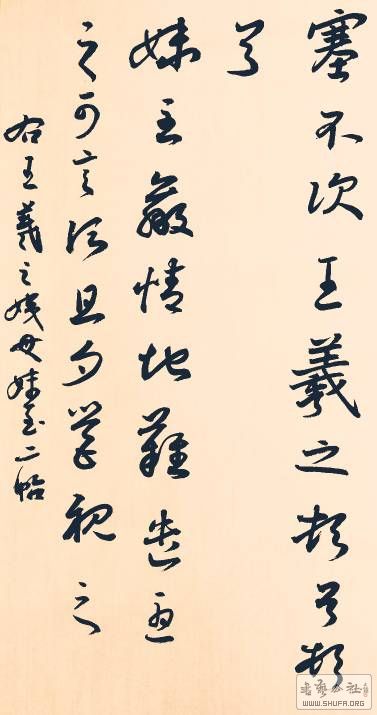 塞不次王羲之頓首頓
首
妹至羸情地難遣憂
之可言須旦夕營視之
右王羲之姨母妹至二帖
书艺公社
WWW.SHUFA.ORG